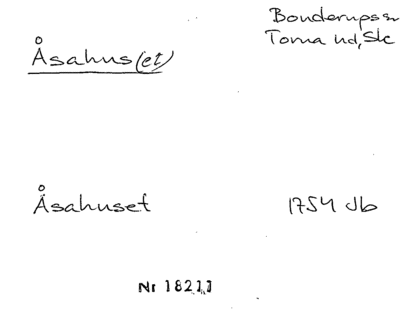 Bonderups sn
Torna hd, Sk
Åsahus(et)
Åsahuset 1754 Jb
Nr 18211